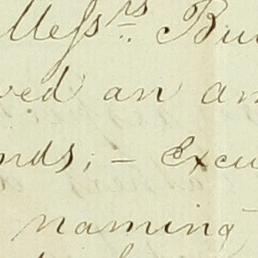 Messrs. Bu
ved an an
nds; — Excu
naming